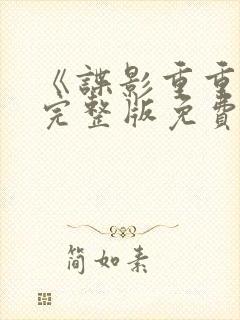 《諜影重重
完整版免費
简如素